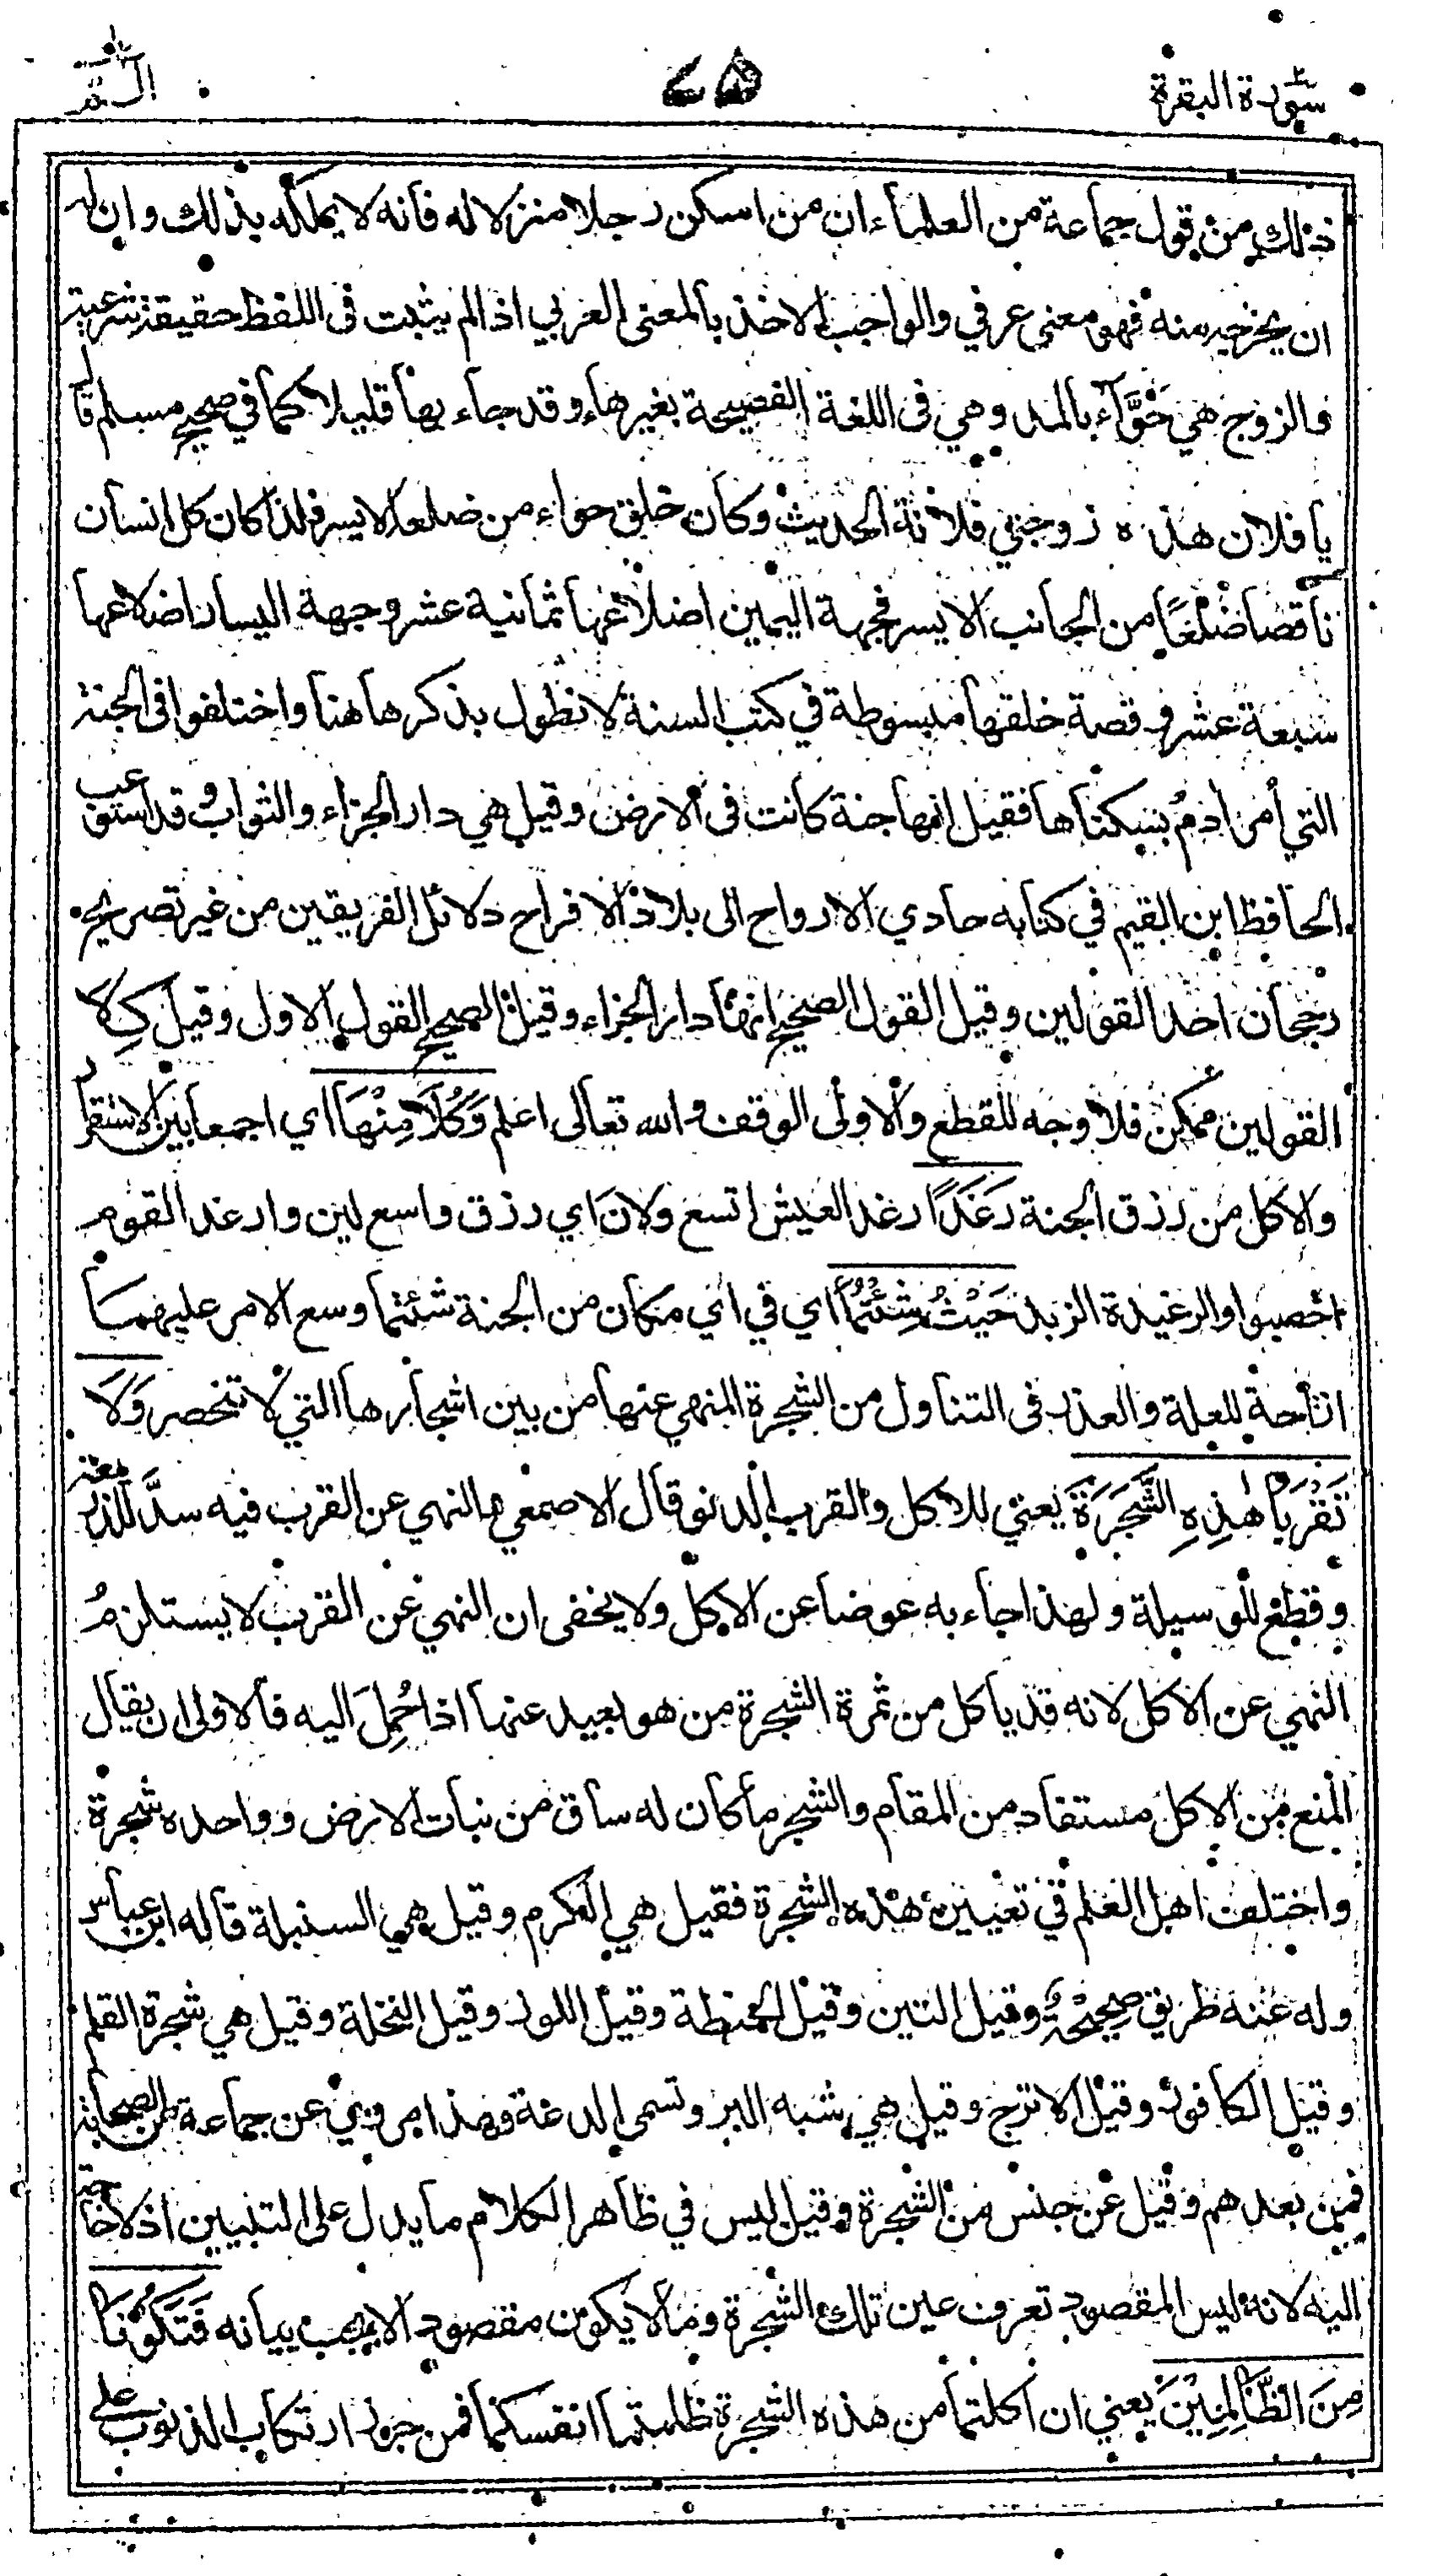 سورة البقرة
٧٥
الٓمّٓ
ذلك من قول جماعة من العلماء ان من اسكن رجلا منزلا له فانه لا يملكه بذلك وان له
ان يخرجه منه فهو معنى عرفي والواجب الاخذ بالمعنى العربي اذا لم يثبت في اللفظ حقيقة شرعية
والزوج هي حَوَّآء بالمد وهي في اللغة الفصيحة بغير هاء وقد جاء بها قليلا كما في صحيح مسلم قال
يا فلان هذه زوجتي فلانة الحديث وكان خلق حواء من ضلعه الايسر فلذا كان كل انسان
ناقصا ضلعًا من الجانب الايسر فجهة اليمين اضلاعها ثمانية عشر وجهة اليسار اضلاعها
سبعة عشر وقصة خلقها مبسوطة في كتب السنة لا نطول بذكرها هنا واختلفوا في الجنة
التي أمر آدم بسكناها فقيل انها جنة كانت في الارض وقيل هي دار الجزاء والثواب وقد استوعب
الحافظ ابن القيم في كتابه حادي الارواح الى بلاد الافراح دلائل الفريقين من غير تصريح
رجحان احد القولين وقيل القول الصحيح انها دار الجزاء وقيل الصحيح القول الاول وقيل كِلا
القولين ممكن فلا وجه للقطع والاولى الوقف والله تعالى اعلم وَكُلَا مِنْهَا اي اجمعا بين الاستقرار
والاكل من رزق الجنة رَغَدًا رغد العيش اتسع ولان اي رزق واسع لين وارغد القوم
اخصبوا والرغيدة الزبد حَيْثُ شِئْتُمَا اي في اي مكان من الجنة شئتما وسع الامر عليهما
ازاحة للعلة والعذر في التناول من الشجرة المنهي عنها من بين اشجارها التي لا تنحصر وَلَا
تَقْرَبَا هٰذِهِ الشَّجَرَةَ يعني للاكل والقرب الدنو قال الاصمعي والنهي عن القرب فيه سدّ للذريعة
وقطع للوسيلة ولهذا جاء به عوضا عن الاكل ولا يخفى ان النهي عن القرب لا يستلزم
النهي عن الاكل لانه قد يأكل من ثمرة الشجرة من هو بعيد عنها اذا حُمِلَ اليه فالاولى ان يقال
المنع من الاكل مستفاد من المقام والشجر ما كان له ساق من نبات الارض وواحده شجرة
واختلف اهل العلم في تعيين هذه الشجرة فقيل هي الكرم وقيل هي السنبلة قاله ابن عباس
وله عنه طريق صحيحة وقيل التين وقيل الحنطة وقيل اللوز وقيل النخلة وقيل هي شجرة القلم
وقيل الكافور وقيل الاترج وقيل هي شبه البر وتسمى الدعة وهذا مروي عن جماعة من الصحابة
فمن بعدهم وقيل عن جنس من الشجرة وقيل ليس في ظاهر الكلام ما يدل على التبيين اذ لا حاجة
اليه لانه ليس المقصود تعرف عين تلك الشجرة وما لا يكون مقصودا لا يجب بيانه فَتَكُوْنَا
مِنَ الظّٰالِمِيْنَ يعني ان اكلتما من هذه الشجرة ظلمتما انفسكما فمن جوز ارتكاب الذنوب على